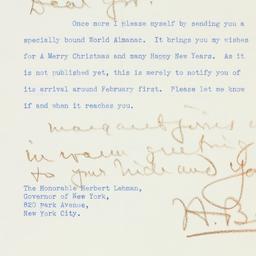 Dear Gov.
Once more I please myself by sending you a
specially bound World Almanac. It brings you my wishes
for A Merry Christmas and many Happy New Years. As it
is not published yet, this is merely to notify you of
its arrival around February first. Please let me know
if and when it reaches you.
Margaret joins
in warm greeting
to your bride and you
The Honorable Herbert Lehman,
Governor of New York,
820 Park Avenue,
New York City.
H. B.